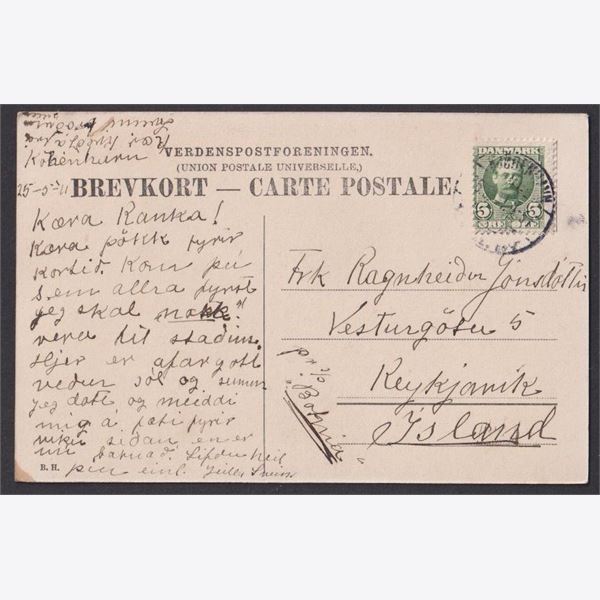 Kobenhavn
25-5-11
VERDENSPOSTFORENINGEN.
(UNION POSTALE UNIVERSELLE,)
BREVKORT — CARTE POSTALE
DANMARK
5 5
ØRE
Kæra Ranka!
Kæra þökk fyrir
kortið. Kom þu
sem allra fyrst
jeg skal nokk"
vera til staðin.
Hjer er afargott
veður sól og sumur
jeg dott og meiddi
mig á fæti fyrir
viku siðan en er
nu batnað. Lifðu heil
þin einl.
B. H.
Frk Ragnheidur Jónsdóttir
Vesturgötu 5
Reykjavik
Island
p. r. s/s
"Botnia"